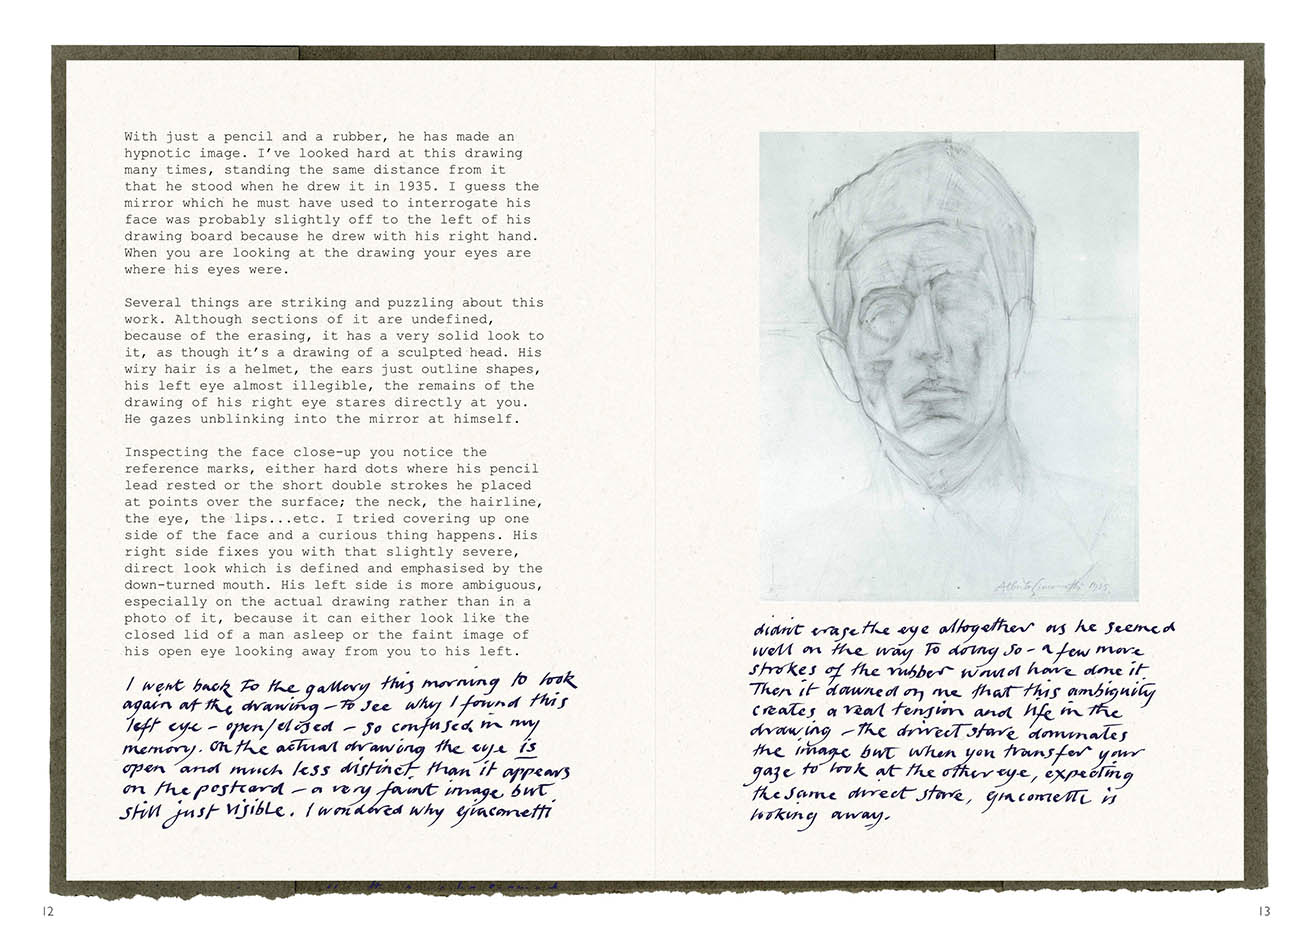 With just a pencil and a rubber, he has made an
hypnotic image. I've looked hard at this drawing
many times, standing the same distance from it
that he stood when he drew it in 1935. I guess the
mirror which he must have used to interrogate his
face was probably slightly off to the left of his
drawing board because he drew with his right hand.
When you are looking at the drawing your eyes are
where his eyes were.
Several things are striking and puzzling about this
work. Although sections of it are undefined,
because of the erasing, it has a very solid look to
it, as though it's a drawing of a sculpted head. His
wiry hair is a helmet, the ears just outline shapes,
his left eye almost illegible, the remains of the
drawing of his right eye stares directly at you.
He gazes unblinking into the mirror at himself.
Inspecting the face close-up you notice the
reference marks, either hard dots where his pencil
lead rested or the short double strokes he placed
at points over the surface; the neck, the hairline,
the eye, the lips...etc. I tried covering up one
side of the face and a curious thing happens. His
right side fixes you with that slightly severe,
direct look which is defined and emphasised by the
down-turned mouth. His left side is more ambiguous,
especially on the actual drawing rather than in a
photo of it, because it can either look like the
closed lid of a man asleep or the faint image of
his open eye looking away from you to his left.
I went back to the gallery this morning to look
again at the drawing – to see why I found this
left eye – open/closed – so confused in my
memory. On the actual drawing the eye is
open and much less distinct than it appears
on the postcard – a very faint image but
still just visible. I wondered why Giacometti
12
Alberto Giacometti 1935
didn't erase the eye altogether as he seemed
well on the way to doing so – a few more
strokes of the rubber would have done it.
Then it dawned on me that this ambiguity
creates a real tension and life in the
drawing – the direct stare dominates
the image but when you transfer your
gaze to look at the other eye, expecting
the same direct stare, Giacometti is
looking away.
13